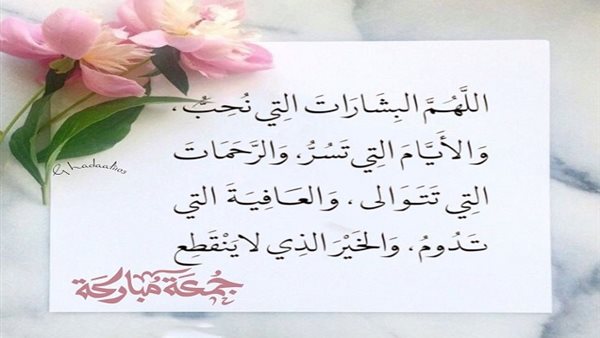 اللَّهُمَّ البِشَارَاتَ التِي نُحِبُّ،
وَالأَيَّامَ التِي تَسُرُّ، وَالرَّحَمَاتَ
التِي تَتَوَالى، وَالعَافِيَةَ التي
تَدُومُ، وَالخَيْرَ الذِي لا يَنْقَطِع
جُمعَة مُبَاركَة